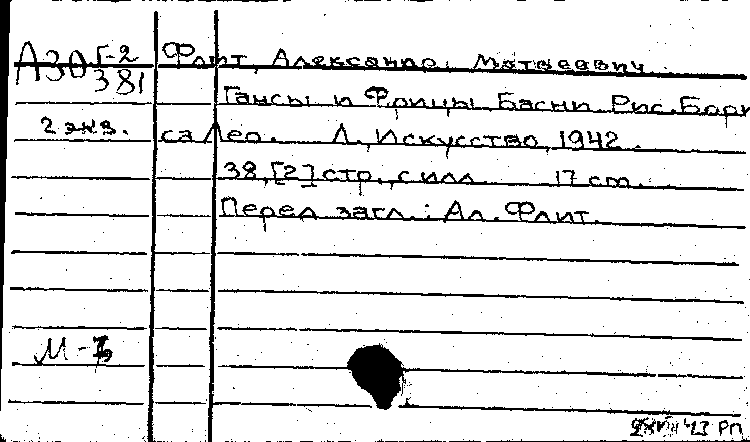 А30 Г-2/381 Флит, Александр Матвеевич.
Гансы и Фрицы. Басни. Рис. Бори
2 экз. са Лео. Л., Искусство, 1942.
38, [2] стр., с илл. 17 cm.
Перед загл.: Ал. Флит.
М-
43 РП